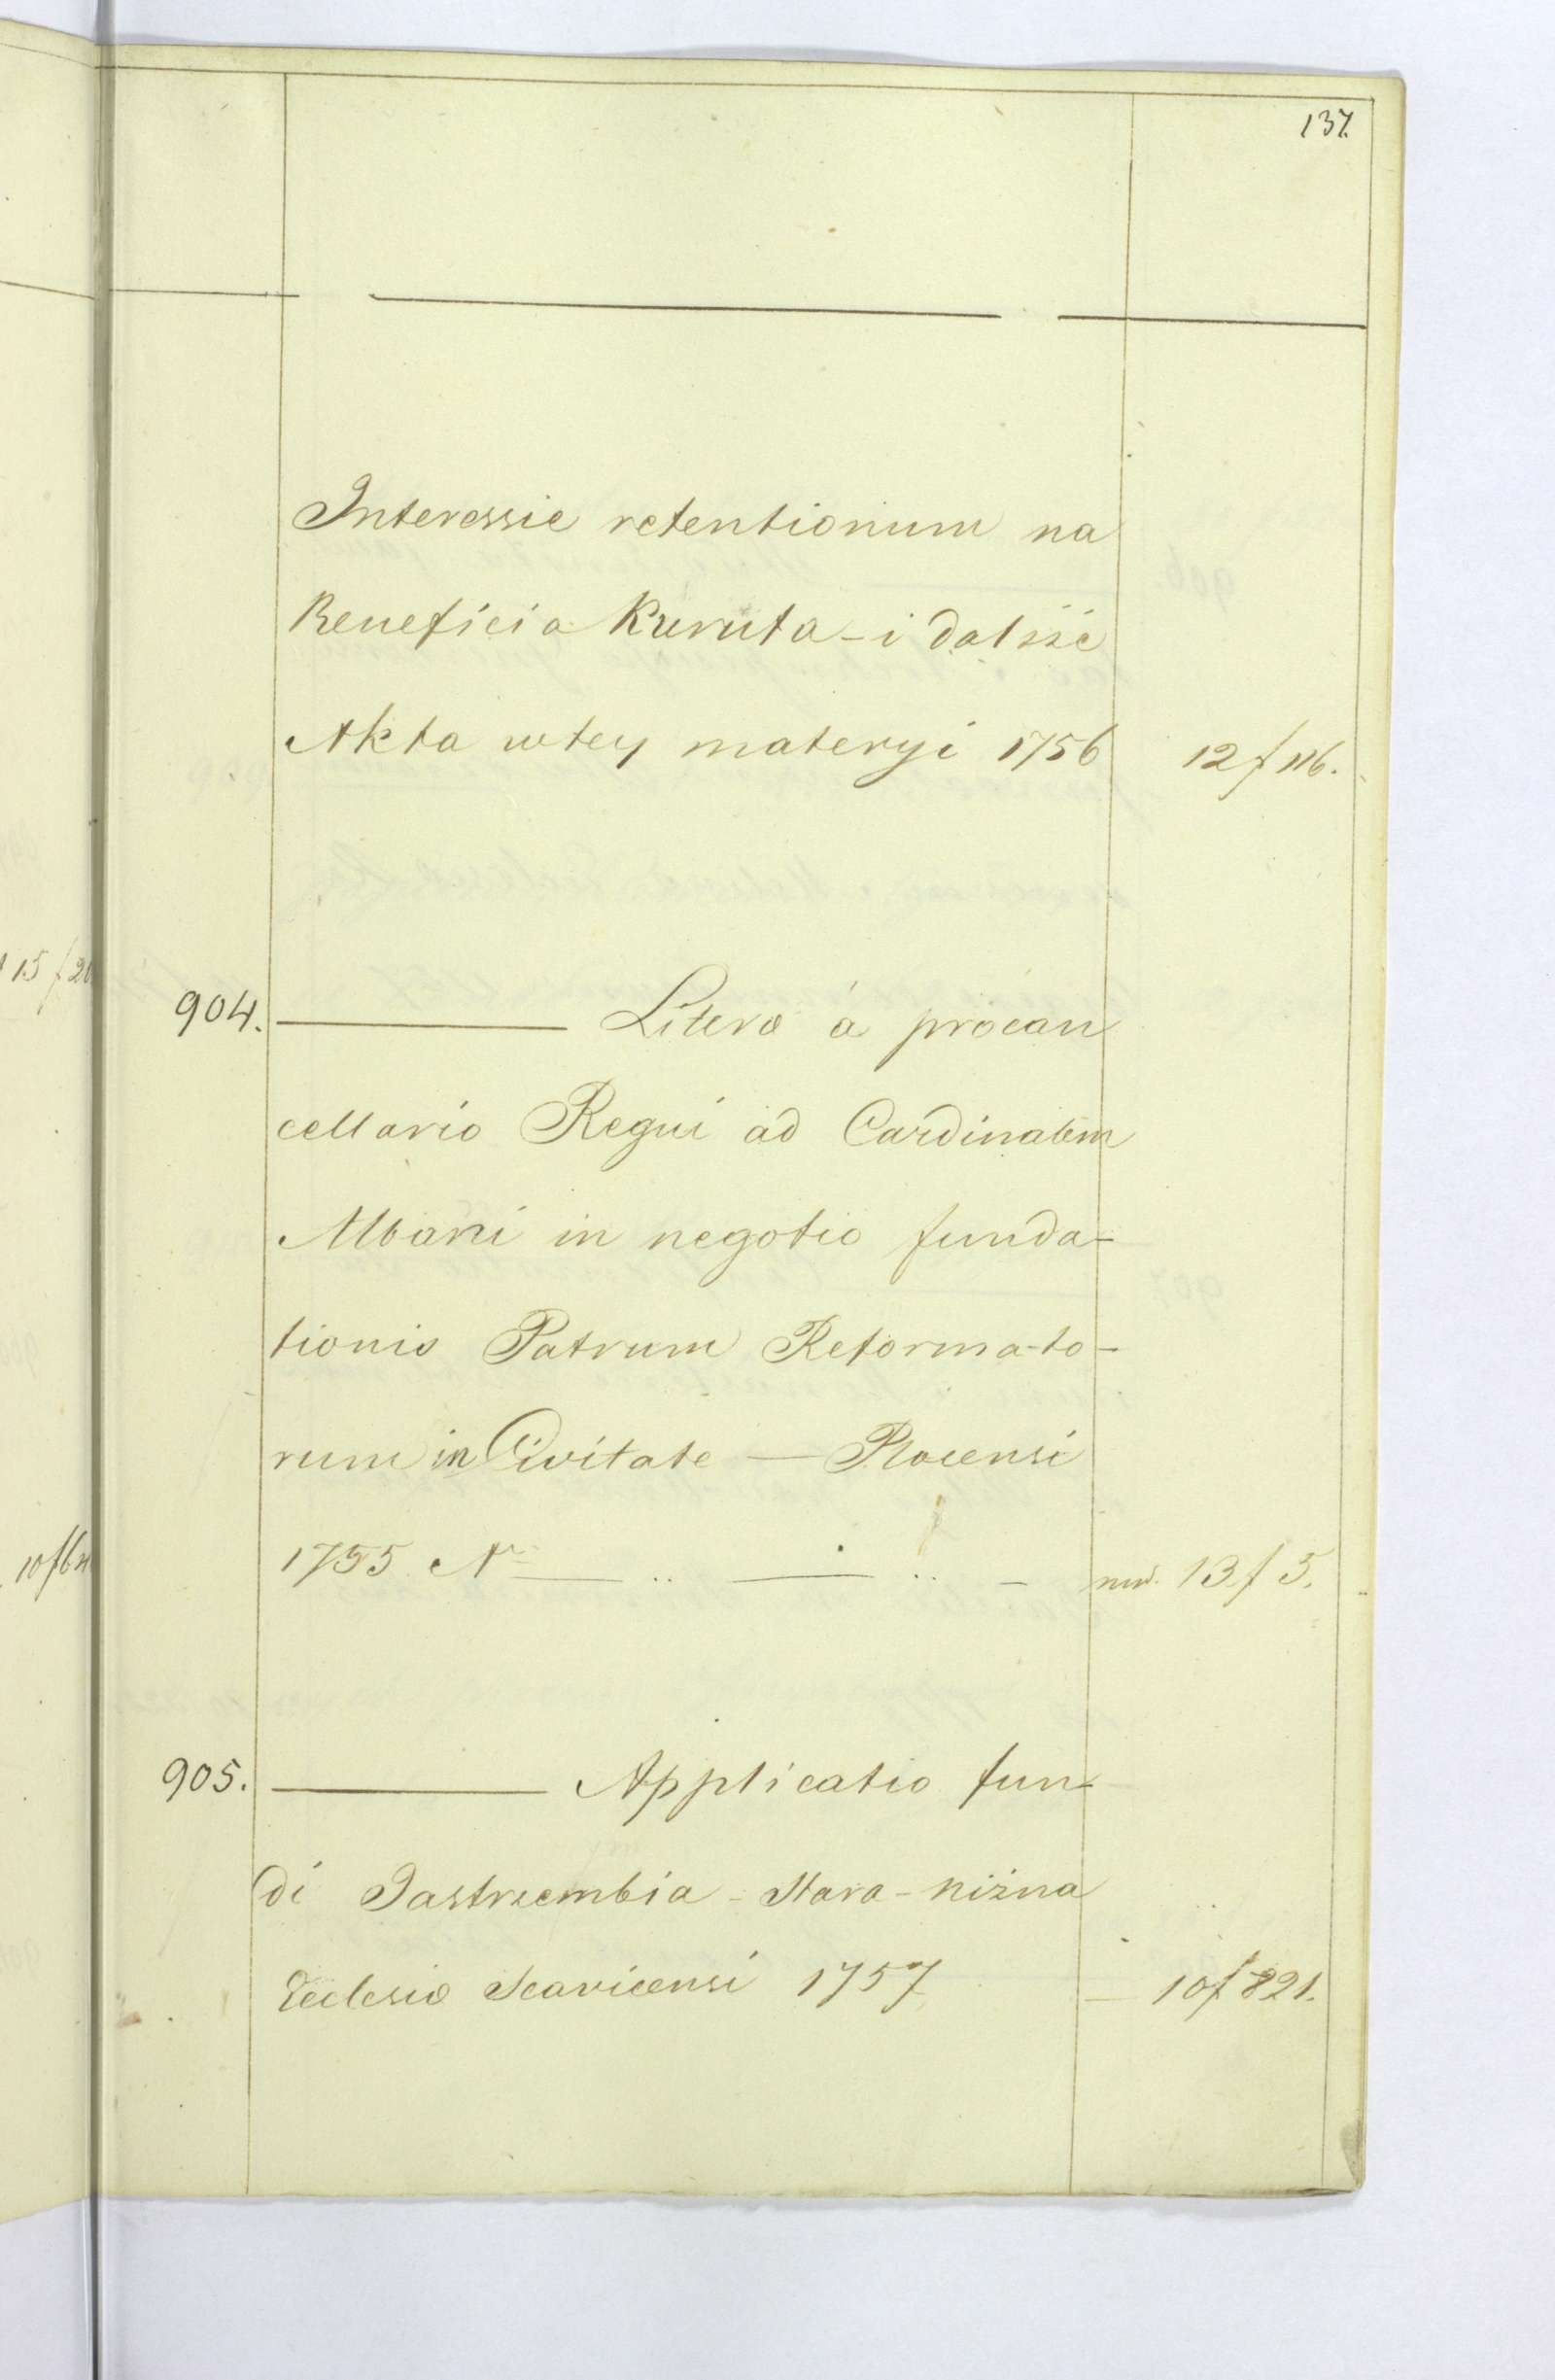 137.
Interessie retentionum na
Beneficia Kuruta - i dalsze
Akta wtey materyi 1756 12 f 116.
904. ——— Literæ à procan
cellario Regni ad Cardinalem
Albani in negotio funda-
tionis Patrum Reformato-
rum in Civitate — Plocensi
1755 N — .. — .. - 13 f 5.
905. ——— Applicatio fun-
di Jastrzembia - Stara - niżna
Ecclesiæ Scavicensi 1757 — 10 f 821.
15 f 20
10 f